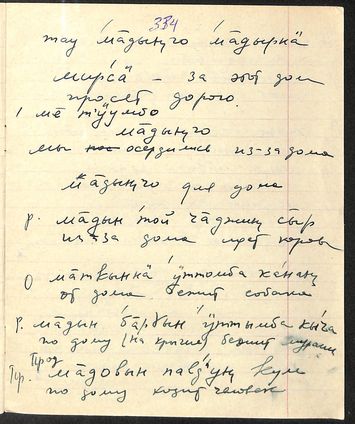 334
тау мадыӈго мадырна
мирса̄ – за этот дом
просят дорого.
ме тӱумбо
мадыӈго
мы осердились из-за дома
ма̄дыӈго для дома
Р. ма̄дын той чаджиӈ сыр
из-за дома идет корова
О ма̄тӄынна ӱттомба кана̄ӈ
от дома бежит собака
Р. мадын ба̄рӄын ӱттымба кыча
по дому (на крыше) бежит
Прод
Пр. ма̄довын палд'уӈ кум
по дому ходит человек